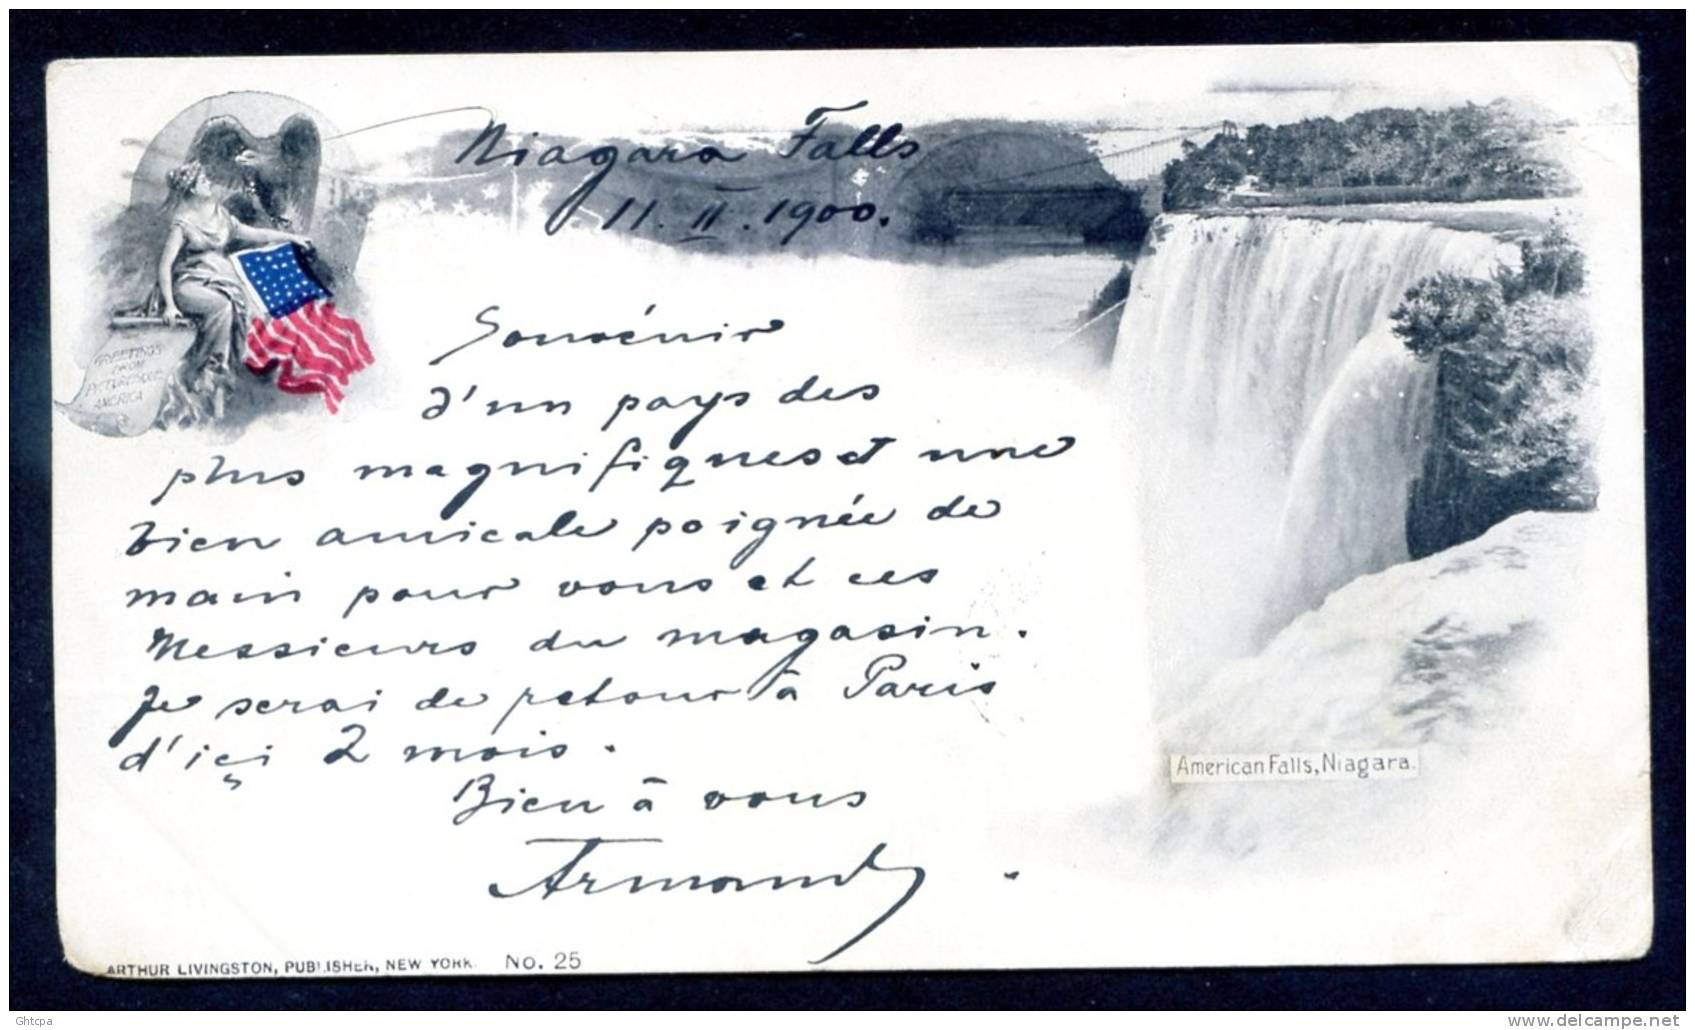 Niagara Falls
11. II. 1900.
GREETINGS
FROM
PICTURESQUE
AMERICA
Souvénir
d'un pays des
plus magnifiques et une
bien amicale poignée de
main pour vous et ces
Messieurs du magasin.
Je serai de retour à Paris
d'içi 2 mois.
Bien à vous
Armand
American Falls, Niagara.
ARTHUR LIVINGSTON, PUBLISHER, NEW YORK. No. 25
Ghtcpa
www.delcampe.net